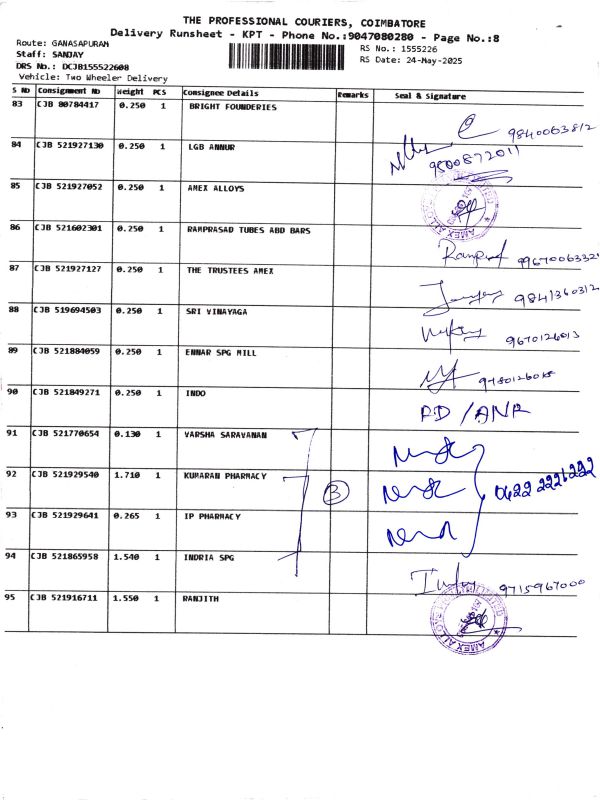 THE PROFESSIONAL COURIERS, COIMBATORE
Delivery Runsheet - KPT - Phone No.:9047080280 - Page No.:8
Route: GANASAPURAM
Staff: SANJAY
RS No.: 1555226
DRS No.: DCJB155522608
RS Date: 24-May-2025
Vehicle: Two Wheeler Delivery
S No Consignment No Weight PCS Consignee Details Remarks Seal & Signature
83 CJB 80784417 0.250 1 BRIGHT FOUNDERIES
9840063812
84 CJB 521927130 0.250 1 LGB ANNUR
9500872011
85 CJB 521927052 0.250 1 AMEX ALLOYS
86 CJB 521602301 0.250 1 RAMPRASAD TUBES ABD BARS
9967006332
87 CJB 521927127 0.250 1 THE TRUSTEES AMEX
9841360312
88 CJB 519694503 0.250 1 SRI VINAYAGA
9670126013
89 CJB 521884059 0.250 1 ENNAR SPG MILL
90 CJB 521849271 0.250 1 INDO
PD /ANR
91 CJB 521770654 0.130 1 VARSHA SARAVANAN
92 CJB 521929540 1.710 1 KUMARAN PHARMACY
3
0422 2226222
93 CJB 521929641 0.265 1 IP PHARMACY
94 CJB 521865958 1.540 1 INDRIA SPG
9715967000
95 CJB 521916711 1.550 1 RANJITH